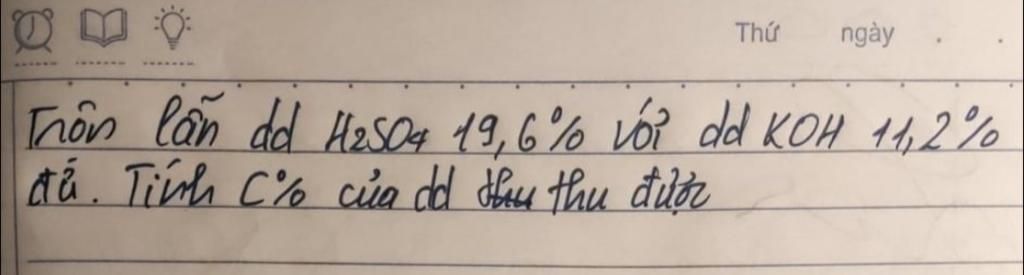 Thứ ngày . .
Trôn lẫn dd H2SO4 19,6% với dd KOH 11,2%
đủ. Tính C% của dd thu được